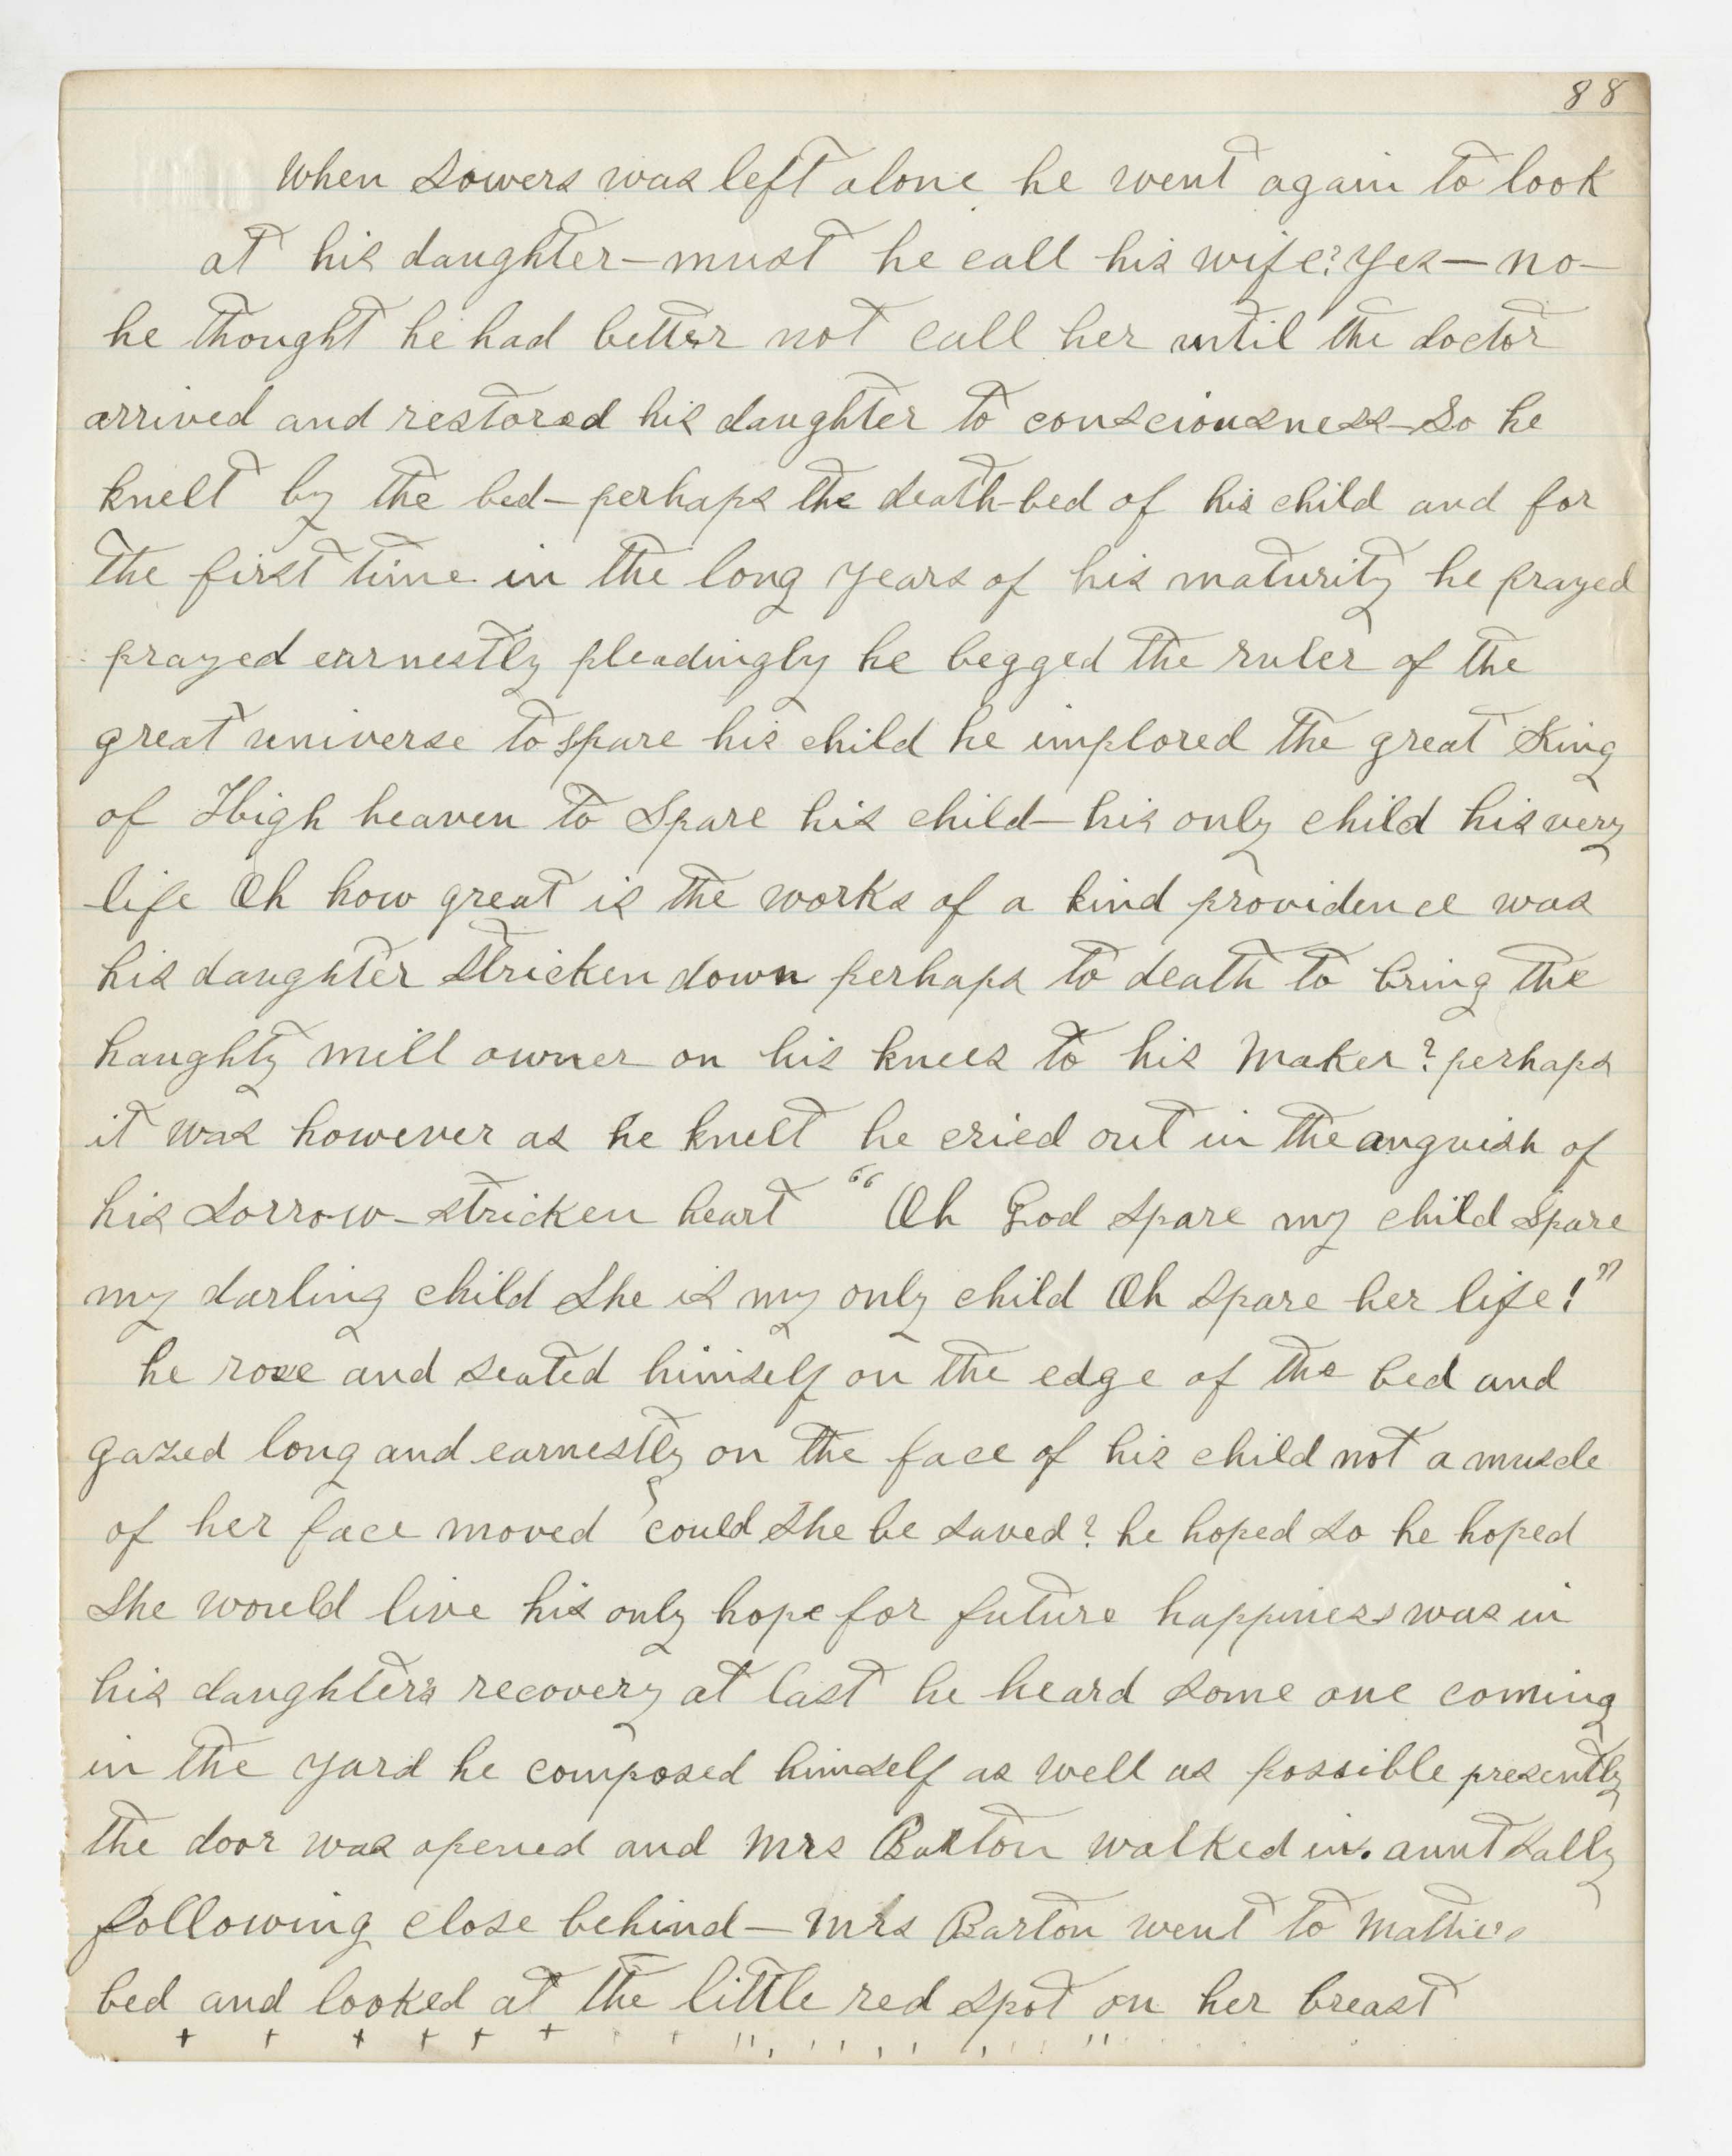 88
When Sowers was left alone he went again to look
at his daughter—must he call his wife? Yes—no—
he thought he had better not call her until the doctor
arrived and restored his daughter to consciousness—So he
knelt by the bed—perhaps the death-bed of his child and for
the first time in the long years of his maturity he prayed
prayed earnestly pleadingly he begged the ruler of the
great universe to spare his child he implored the great King
of High heaven to Spare his child—his only child his very
life Oh how great is the works of a kind providence was
his daughter stricken down perhaps to death to bring the
haughty mill owner on his knees to his Maker? perhaps
it was however as he knelt he cried out in the anguish of
his sorrow-stricken heart "Oh God spare my child Spare
my darling child She is my only child Oh spare her life!"
he rose and seated himself on the edge of the bed and
gazed long and earnestly on the face of his child not a muscle
of her face moved could She be saved? he hoped so he hoped
She would live his only hope for future happiness was in
his daughter's recovery at last he heard some one coming
in the yard he composed himself as well as possible presently
the door was opened and Mrs Barton walked in. aunt Sally
following close behind—Mrs Barton went to Mattie's
bed and looked at the little red spot on her breast